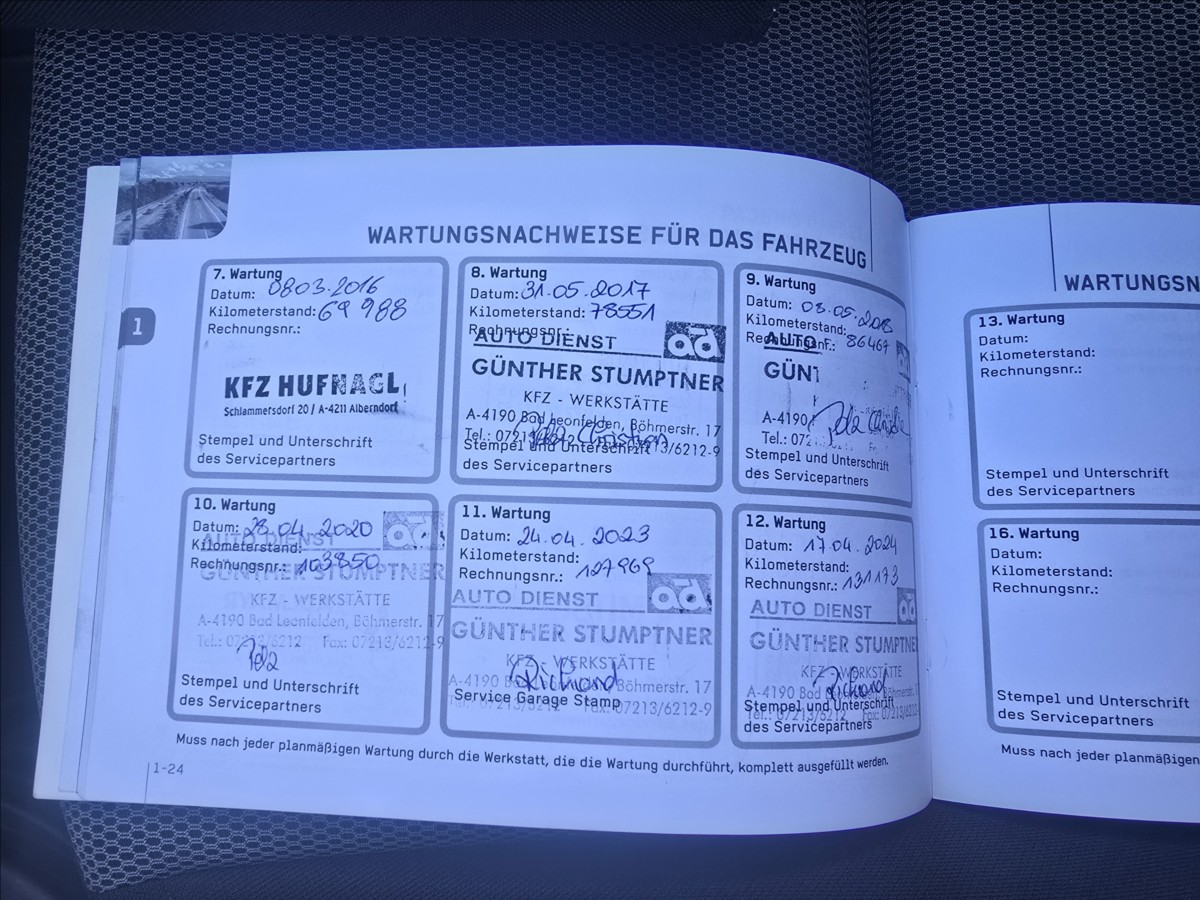 WARTUNGSNACHWEISE FÜR DAS FAHRZEUG
1
7. Wartung
Datum: 08 03. 2016
Kilometerstand: 69 988
Rechnungsnr.:
KFZ HUFNAGL
Schlammersdorf 20 / A-4211 Alberndorf
Stempel und Unterschrift
des Servicepartners
8. Wartung
Datum: 31.05.2017
Kilometerstand: 78551
Rechnungsnr.:
AUTO DIENST ad
GÜNTHER STUMPTNER
KFZ - WERKSTÄTTE
A-4190 Bad Leonfelden, Böhmerstr. 17
Tel.: 07213/6212 07213/6212-9
Christian
Stempel und Unterschrift
des Servicepartners
9. Wartung
Datum: 08.05.2018
Kilometerstand: 86467
Rechnungsnr.:
AUTO
GÜNT
A-4190
Tel.: 072
Stempel und Unterschrift
des Servicepartners
10. Wartung
Datum: 28.04.2020
Kilometerstand:
Rechnungsnr.: 103850
AUTO DIENST ad
GÜNTHER STUMPTNER
KFZ - WERKSTÄTTE
A-4190 Bad Leonfelden, Böhmerstr. 17
Tel.: 07213/6212 Fax: 07213/6212-9
Stempel und Unterschrift
des Servicepartners
11. Wartung
Datum: 24.04.2023
Kilometerstand:
Rechnungsnr.: 127969
AUTO DIENST ad
GÜNTHER STUMPTNER
KFZ - WERKSTÄTTE
Richard
A-4190 Böhmerstr. 17
Service Garage Stamp
07213/6212 Fax: 07213/6212-9
12. Wartung
Datum: 17.04.2024
Kilometerstand:
Rechnungsnr.: 131173
AUTO DIENST ad
GÜNTHER STUMPTNER
KFZ - WERKSTÄTTE
Richard
A-4190 Bad Böhmerstr. 1
Stempel und Unterschrift
Tel.: 07213/6212 Fax: 07213/6212
des Servicepartners
Muss nach jeder planmäßigen Wartung durch die Werkstatt, die die Wartung durchführt, komplett ausgefüllt werden.
1-24
WARTUNGSN
13. Wartung
Datum:
Kilometerstand:
Rechnungsnr.:
Stempel und Unterschrift
des Servicepartners
16. Wartung
Datum:
Kilometerstand:
Rechnungsnr.:
Stempel und Unterschrift
des Servicepartners
Muss nach jeder planmäßigen